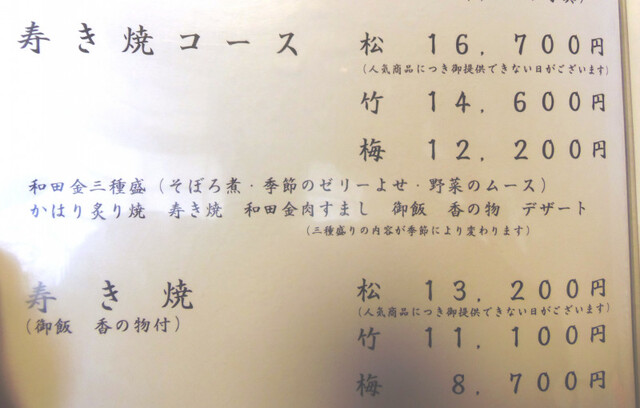 寿き焼コース 松 16,700円
(人気商品につき御提供できない日がございます)
竹 14,600円
梅 12,200円
和田金三種盛(そぼろ煮・季節のゼリーよせ・野菜のムース)
かはり炙り焼 寿き焼 和田金肉すまし 御飯 香の物 デザート
(三種盛りの内容が季節により変わります)
寿き焼 松 13,200円
(人気商品につき御提供できない日がございます)
(御飯 香の物付)
竹 11,100円
梅 8,700円